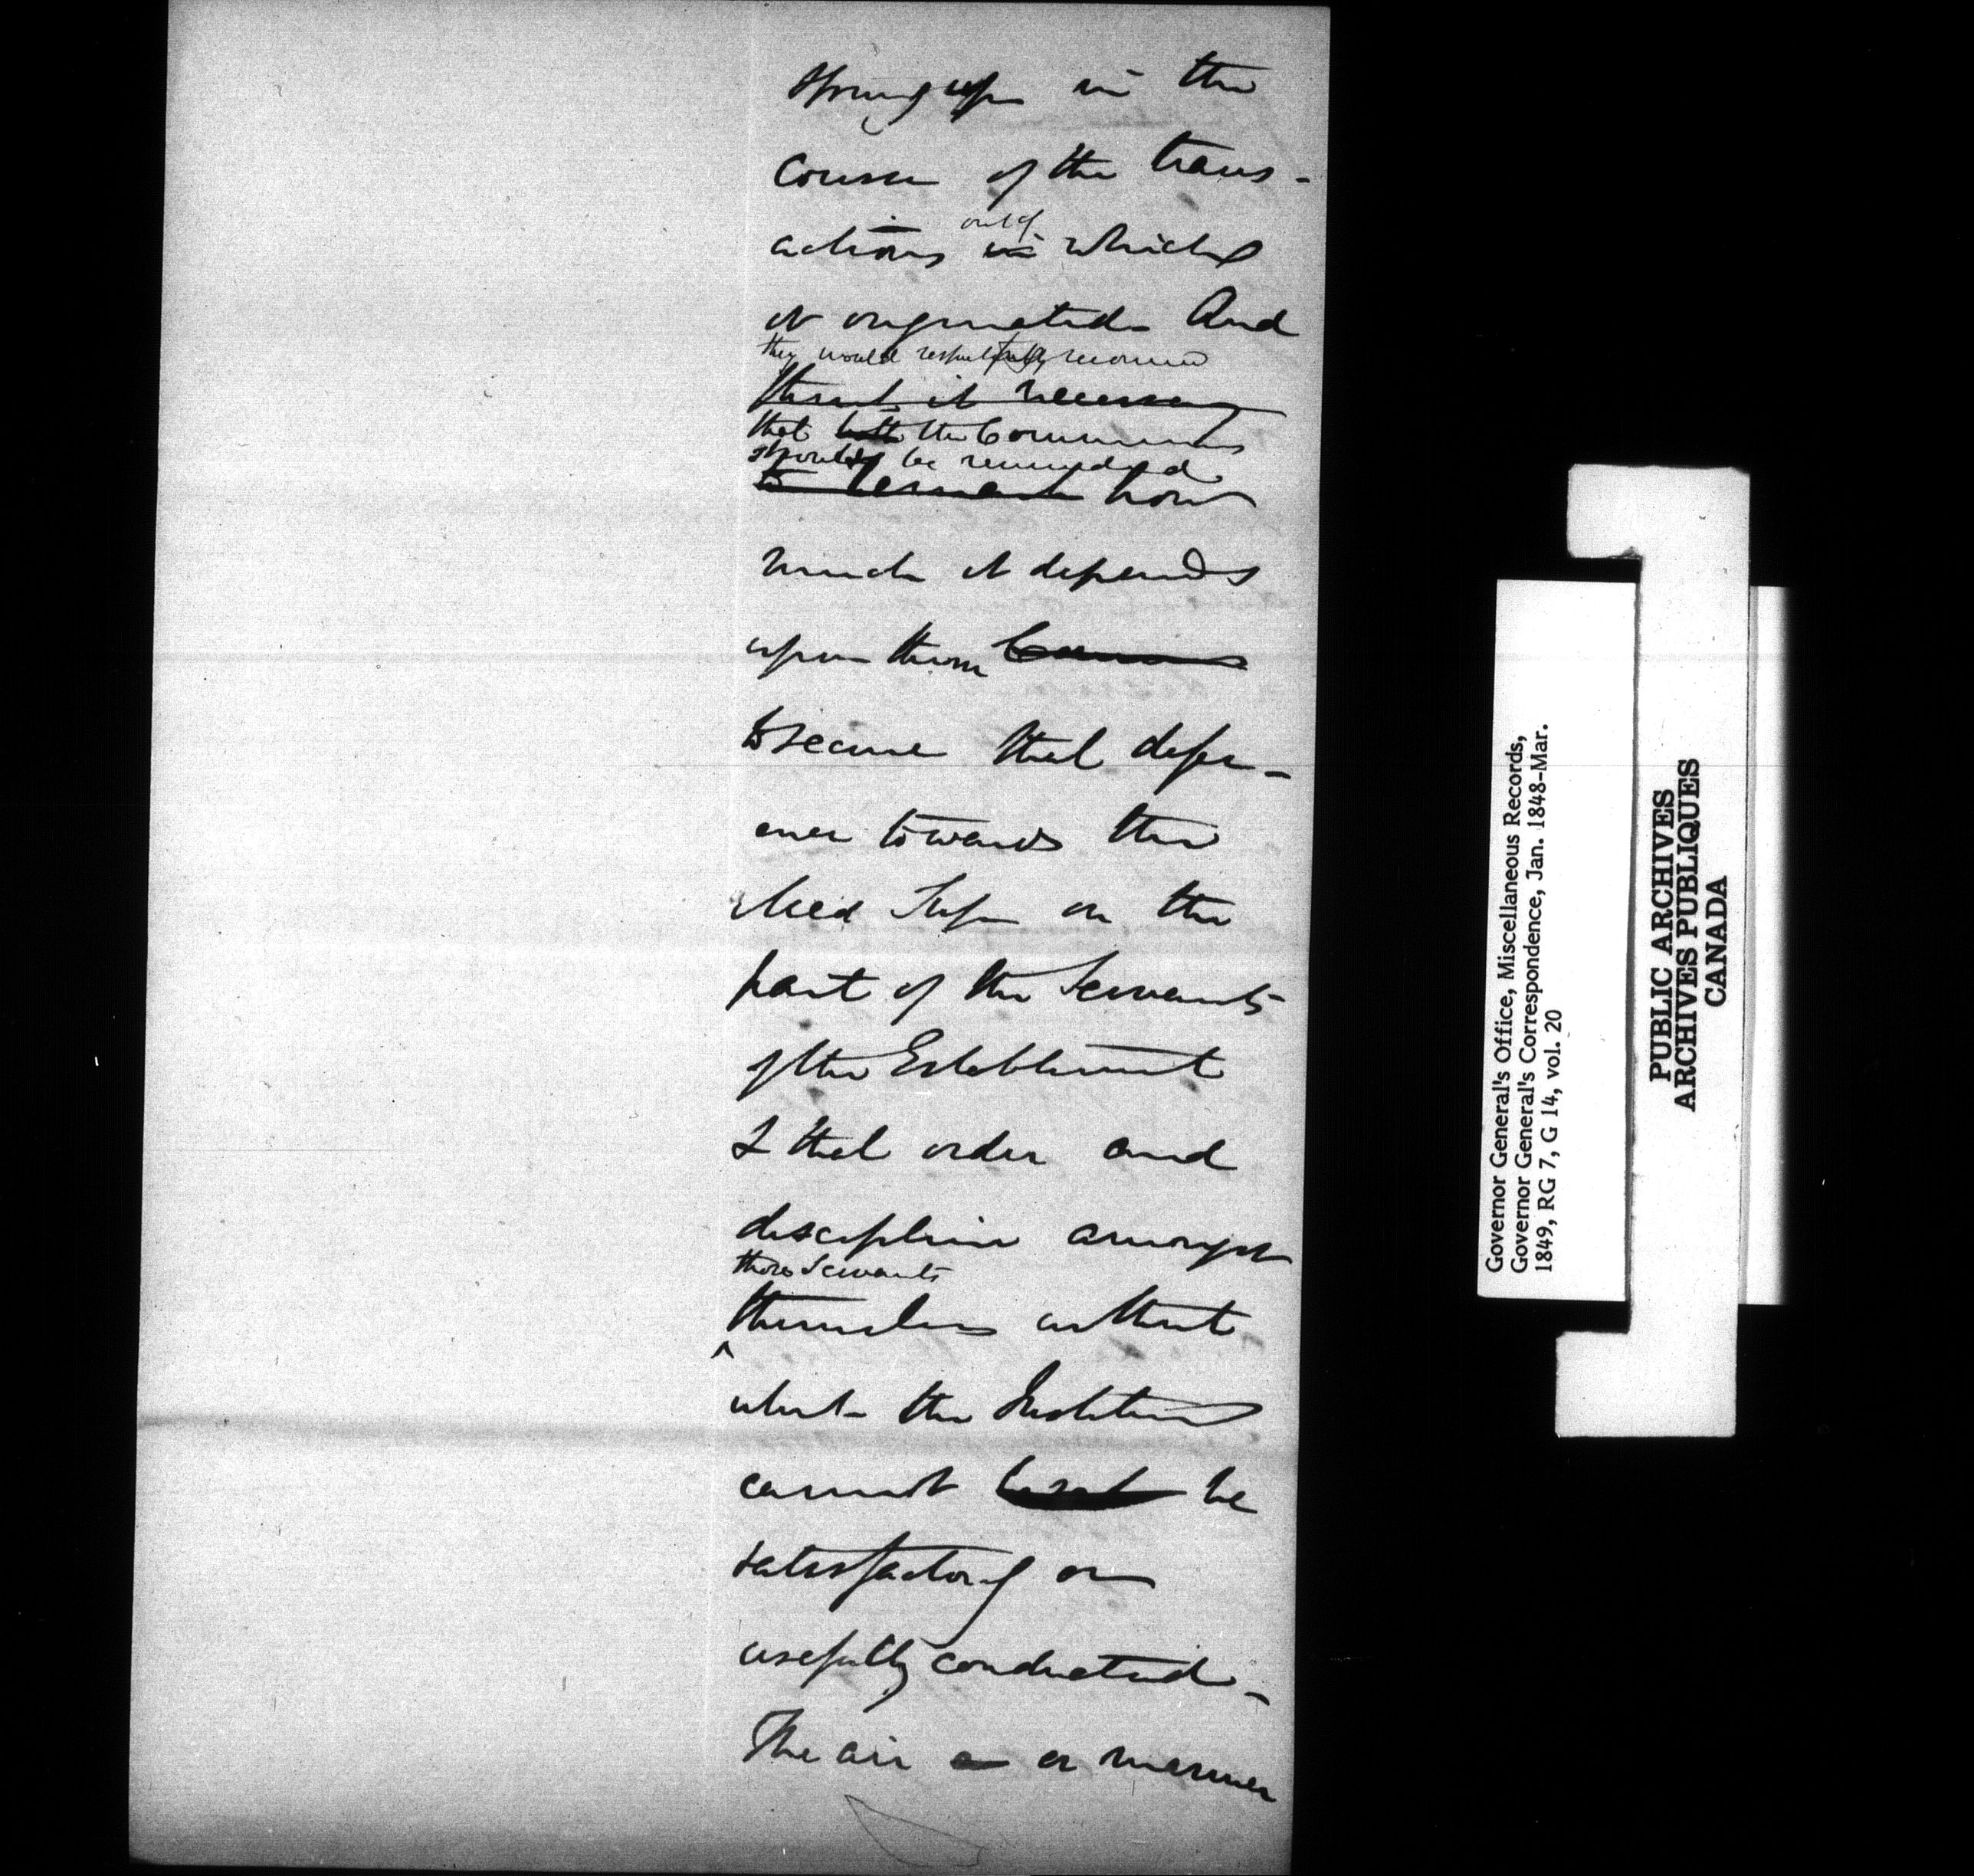 sprung up in the
course of the trans-
actions in which
out of
it originated. And
they would respectfully recommend
think it necessary
that both the Commissioners
should be reminded
to remark how
much it depends
upon them
to secure that defer-
ence towards the
Med Sup on the
part of the Servants
of the Establishment
& that order and
discipline amongst
those Servants
themselves without
which the Institution
cannot be
satisfactorily or
usefully conducted -
The air or manner
Governor General's Office, Miscellaneous Records,
Governor General's Correspondence, Jan. 1848-Mar.
1849, RG 7, G 14, vol. 20
PUBLIC ARCHIVES
ARCHIVES PUBLIQUES
CANADA